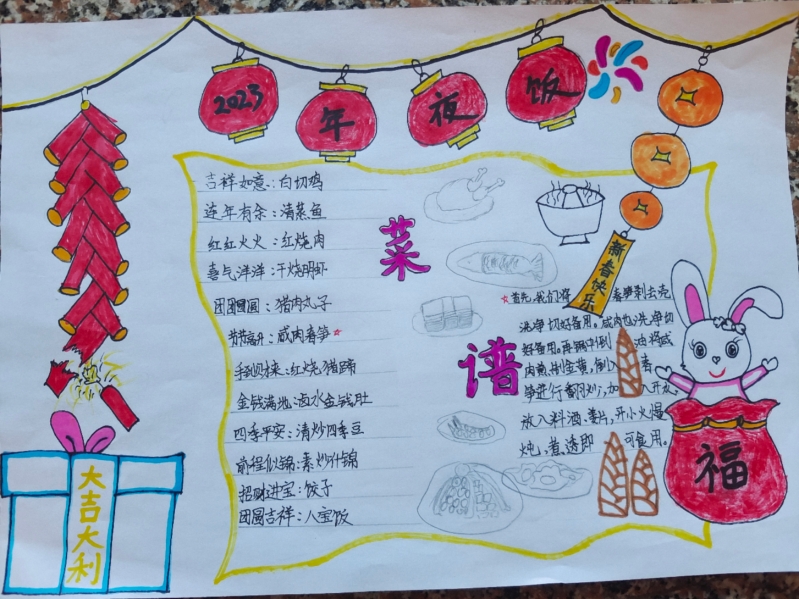 2023
年
夜
饭
吉祥如意:白切鸡
连年有余:清蒸鱼
红红火火:红烧肉
喜气洋洋:干烧明虾
团团圆圆:猪肉丸子
节节高升:咸肉春笋☆
手到来:红烧猪蹄
金钱满地:卤水金钱肚
四季平安:清炒四季豆
前程似锦:素炒什锦
招财进宝:饺子
团圆吉祥:八宝饭
菜
谱
新春快乐
☆首先,我们将 春笋剥去壳
洗净切好备用。咸肉也洗净切
好备用。再锅中倒 油将咸
肉煎制金黄,倒入 春
笋进行翻炒,加 入开水,
放入料酒、姜片,开小火慢
炖,煮透即 可食用。
福
大吉大利